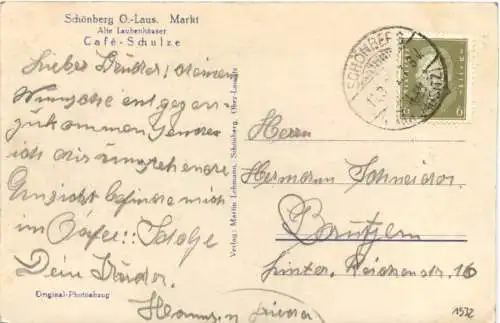 Schönberg O.-Laus. Markt
Alte Laubenhäuser
Café-Schulze
Lieber Bruder! Deinem
Wunsche entgegen-
zukommen sende
ich dir umstehende
Ansicht befinde mich
im Cafee
Dein Bruder.
Original-Photoabzug
Verlag: Martin Lehmann, Schönberg, Ober-Lausitz
SCHÖNBERG
6
Herrn
Hermann Schneider
Bautzen
hinter. Reichenstr. 16
1932